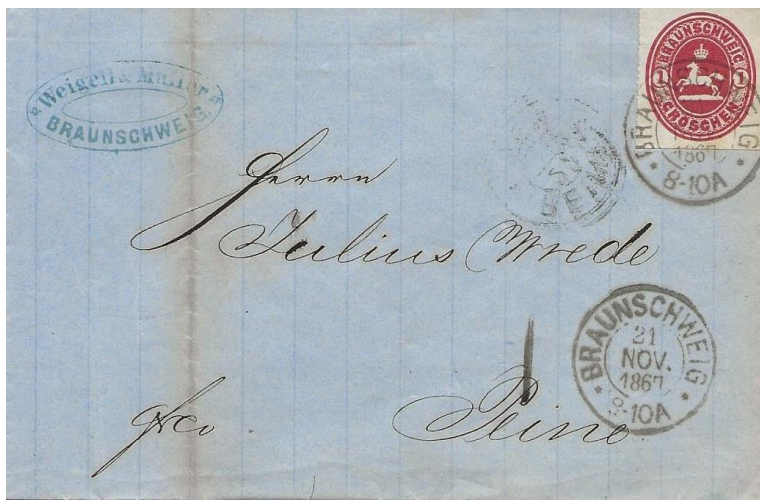 Weigell & Müller
BRAUNSCHWEIG
BRAUNSCHWEIG
1 1
GROSCHEN
BRAUNSCHWEIG
1867
8-10A
Herrn
Julius Wrede
BRAUNSCHWEIG
21
NOV.
1867
8-10A
frco
Peine